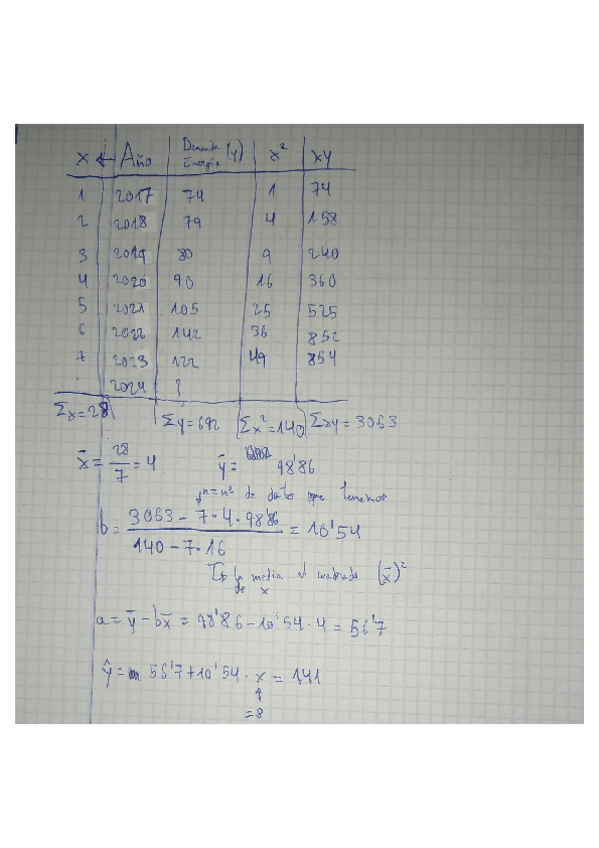 x ← Año Demanda Energía (y) x² xy
1 2017 74 1 74
2 2018 79 4 158
3 2019 80 9 240
4 2020 90 16 360
5 2021 105 25 525
6 2022 142 36 852
7 2023 122 49 854
. 2024 ?
Σx=28 Σy=692 Σx²=140 Σxy=3063
x̄ = 28/7 = 4 ȳ = 98'86
n=nº de datos que tenemos
b = (3063 - 7·4·98'86)/(140-7·16) = 10'54
la media al cuadrado (x̄)²
de x
a = ȳ - bx̄ = 98'86 - 10'54·4 = 56'7
ŷ = 56'7+10'54·x = 141
=8